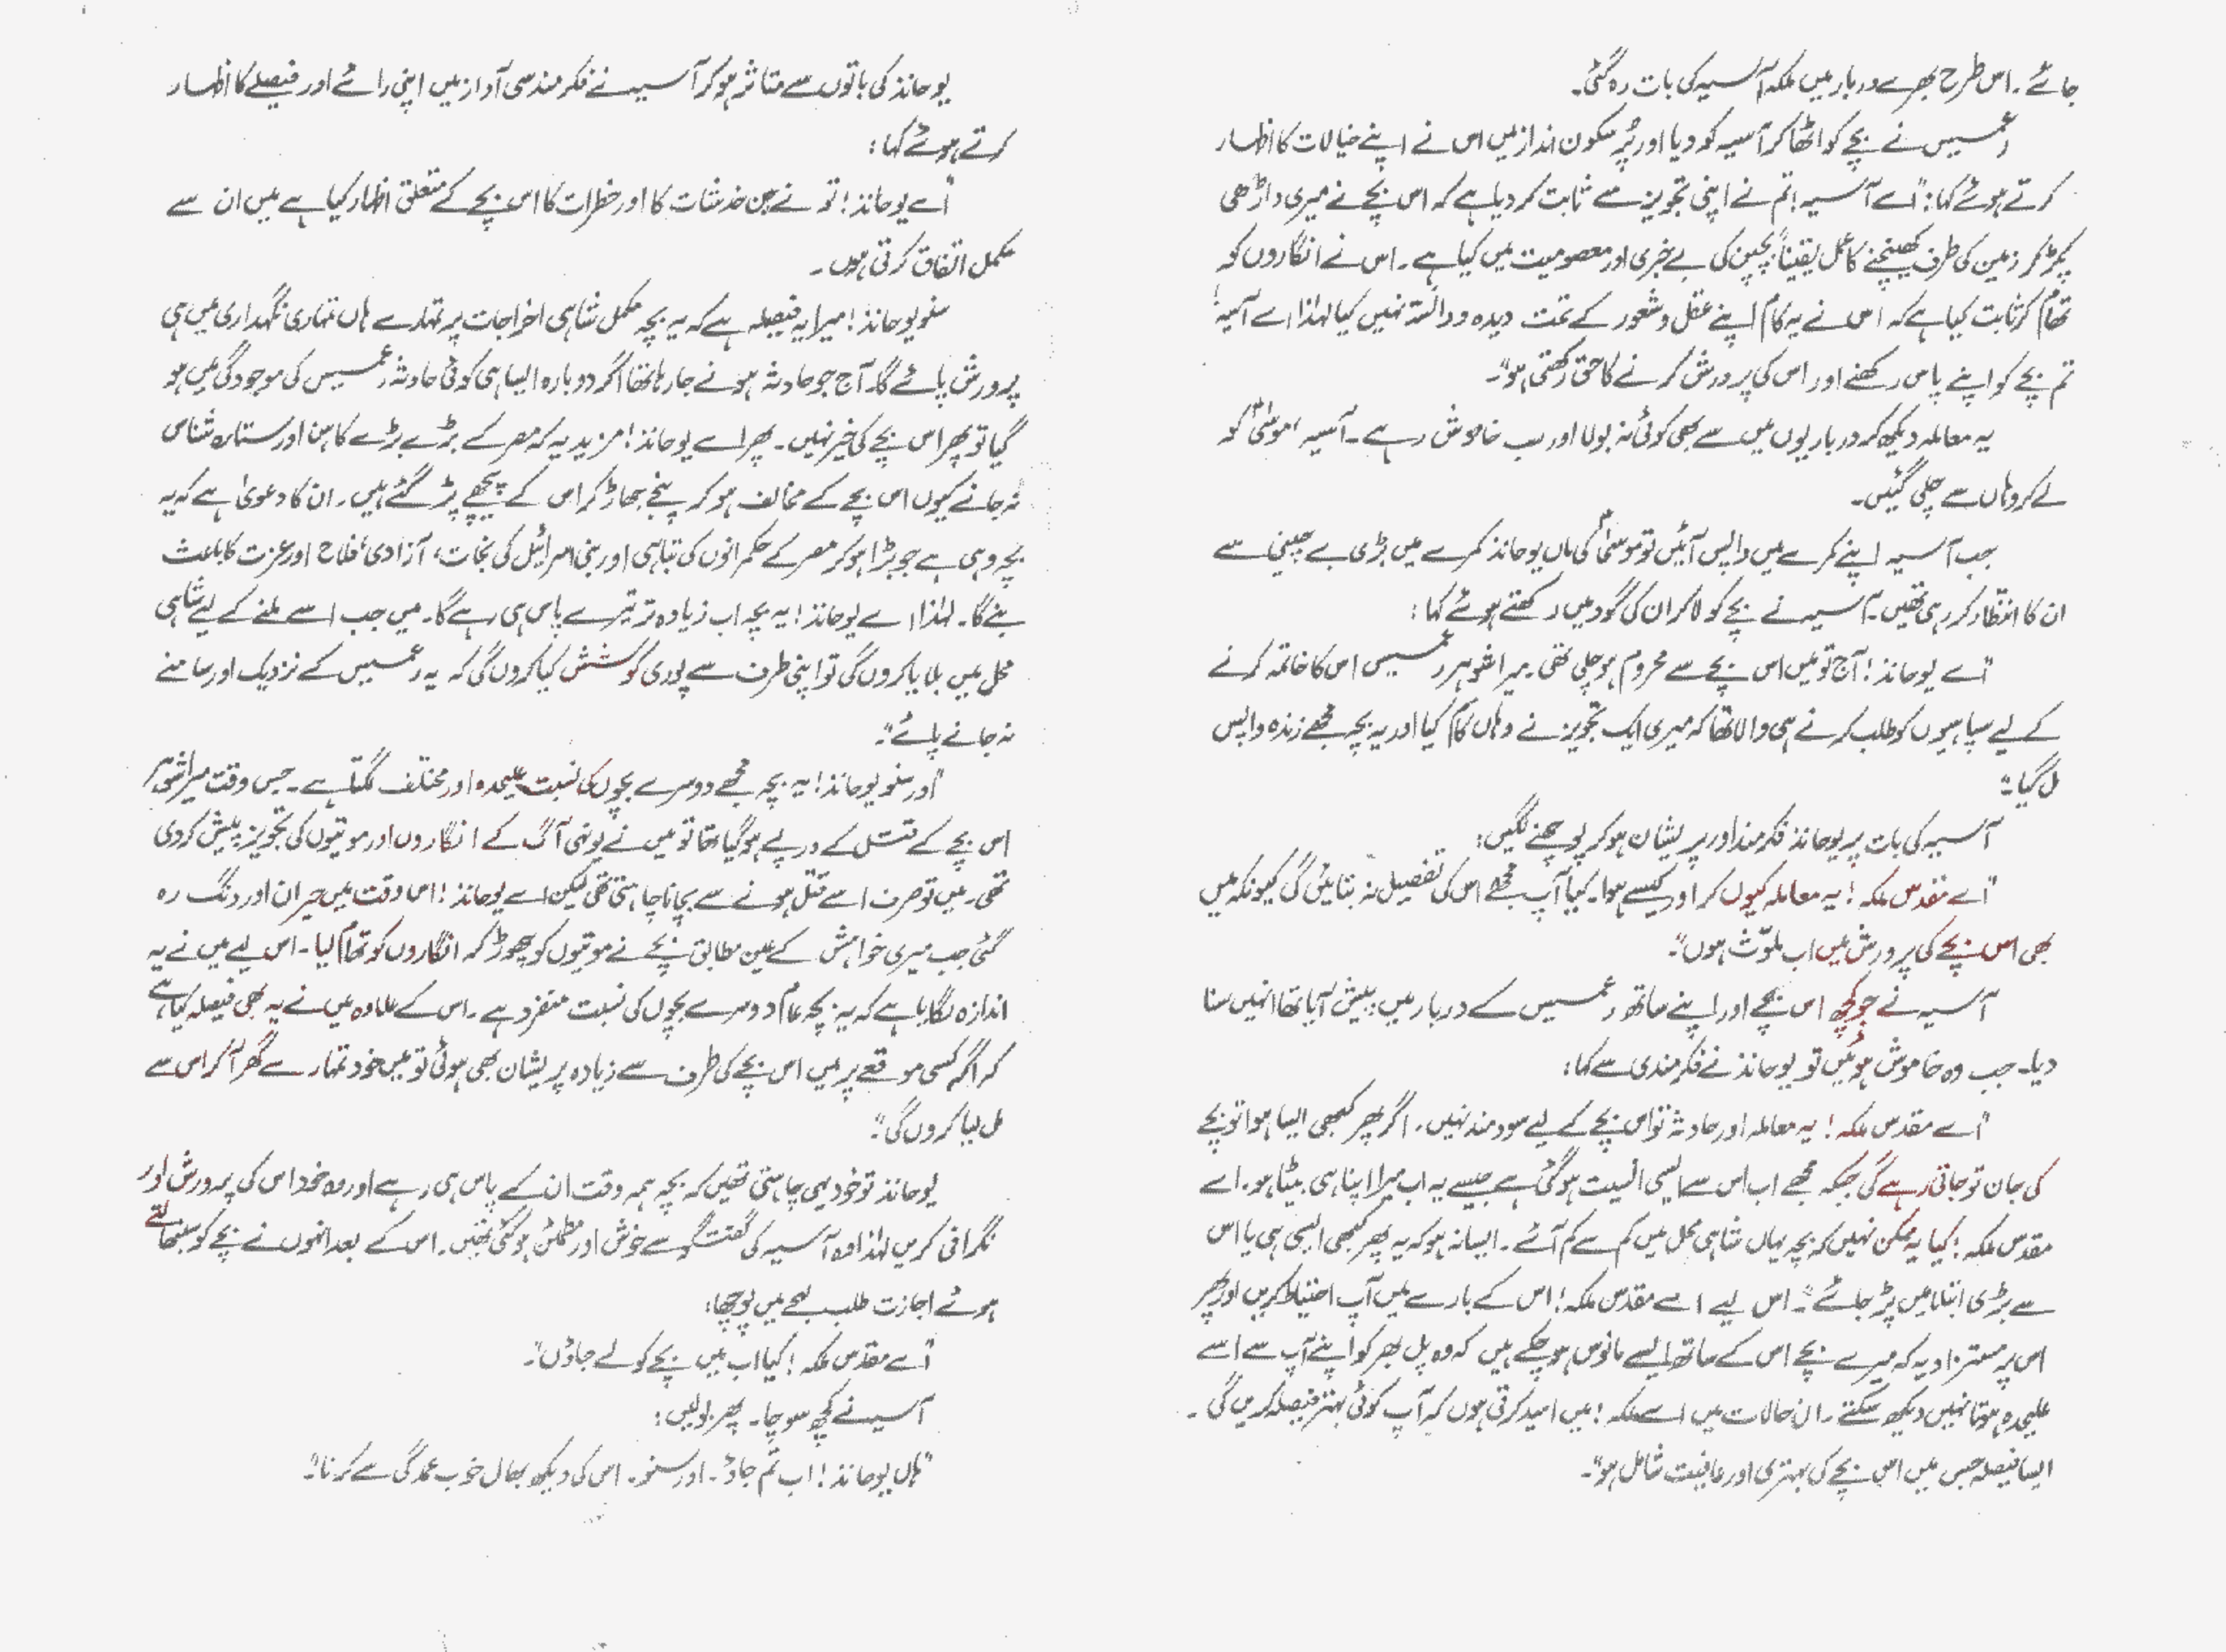 جائے ۔ اس طرح بھرے دربار میں ملکہ آسیہ کی بات رہ گئی۔
رعمسیس نے بچے کو اٹھا کر آسیہ کو دیا اور پُر سکون انداز میں اس نے اپنے خیالات کا اظہار
کرتے ہوئے کہا: "اے آسیہ! تم نے اپنی تجویز سے ثابت کر دیا ہے کہ اس بچے نے میری داڑھی
پکڑ کر زمین کی طرف کھینچنے کا عمل یقیناً بچپن کی بے خبری اور معصومیت میں کیا ہے۔ اس نے انگاروں کو
تھام کر ثابت کیا ہے کہ اس نے یہ کام اپنے عقل و شعور کے تحت دیدہ و دانستہ نہیں کیا لہٰذا اے آسیہ!
تم بچے کو اپنے پاس رکھنے اور اس کی پرورش کرنے کا حق رکھتی ہو"۔
یہ معاملہ دیکھ کر درباریوں میں سے بھی کوئی نہ بولا اور سب خاموش رہے ۔ آسیہ، موسیٰؑ کو
لے کر وہاں سے چلی گئیں۔
جب آسیہ اپنے کمرے میں واپس آئیں تو موسیٰؑ کی ماں یوحانذ کمرے میں بڑی بے چینی سے
ان کا انتظار کر رہی تھیں۔ آسیہ نے بچے کو لا کر ان کی گود میں رکھتے ہوئے کہا :
"اے یوحانذ! آج تو میں اس بچے سے محروم ہو چلی تھی۔ میرا شوہر رعمسیس اس کا خاتمہ کرنے
کے لیے سپاہیوں کو طلب کرنے ہی والا تھا کہ میری ایک تجویز نے وہاں کام کیا اور یہ بچہ مجھے زندہ واپس
مل گیا"۔
آسیہ کی بات پر یوحانذ فکرمند اور پریشان ہو کر پوچھنے لگیں:
"اے مقدس ملکہ! یہ معاملہ کیوں کر اور کیسے ہوا۔ کیا آپ مجھے اس کی تفصیل نہ بتائیں گی کیونکہ میں
بھی اس بچے کی پرورش میں اب ملوّث ہوں"۔
آسیہ نے جو کچھ اس بچے اور اپنے ساتھ رعمسیس کے دربار میں پیش آیا تھا انہیں سنا
دیا۔ جب وہ خاموش ہوئیں تو یوحانذ نے فکرمندی سے کہا:
"اے مقدس ملکہ! یہ معاملہ اور حادثہ تو اس بچے کے لیے سود مند نہیں۔ اگر پھر کبھی ایسا ہوا تو بچے
کی جان تو جاتی رہے گی جبکہ مجھے اب اس سے ایسی انسیت ہو گئی ہے جیسے یہ اب میرا اپنا ہی بیٹا ہو۔ اے
مقدس ملکہ! کیا یہ ممکن نہیں کہ بچہ یہاں شاہی محل میں کم سے کم آئے۔ ایسا نہ ہو کہ یہ پھر کبھی ایسی ہی یا اس
سے بڑی ابتلا میں پڑ جائے"۔ اس لیے اے مقدس ملکہ! اس کے بارے میں آپ احتیاط کریں اور پھر
اس پہ مستزاد یہ کہ میرے بچے اس کے ساتھ ایسے مانوس ہو چکے ہیں کہ وہ پل بھر کو اپنے آپ سے اسے
علیحدہ ہوتا نہیں دیکھ سکتے۔ ان حالات میں اے ملکہ! میں امید کرتی ہوں کہ آپ کوئی بہتر فیصلہ کریں گی۔
ایسا فیصلہ جس میں اس بچے کی بہتری اور عافیت شامل ہو"۔
یوحانذ کی باتوں سے متاثر ہو کر آسیہ نے فکرمند سی آواز میں اپنی رائے اور فیصلے کا اظہار
کرتے ہوئے کہا :
"اے یوحانذ! تو نے جن خدشات کا اور خطرات کا اس بچے کے متعلق اظہار کیا ہے میں ان سے
مکمل اتفاق کرتی ہوں۔
سنو یوحانذ! میرا یہ فیصلہ ہے کہ یہ بچہ مکمل شاہی اخراجات پر تمہارے ہاں تمہاری نگہداری میں ہی
پرورش پائے گا۔ آج جو حادثہ ہونے جا رہا تھا اگر دوبارہ ایسا ہی کوئی حادثہ رعمسیس کی موجودگی میں ہو
گیا تو پھر اس بچے کی خیر نہیں۔ پھر اے یوحانذ! مزید یہ کہ مصر کے بڑے بڑے کاہن اور ستارہ شناس
نہ جانے کیوں اس بچے کے مخالف ہو کر پنجے جھاڑ کر اس کے پیچھے پڑ گئے ہیں۔ ان کا دعویٰ ہے کہ یہ
بچہ وہی ہے جو بڑا ہو کر مصر کے حکمرانوں کی تباہی اور بنی اسرائیل کی نجات، آزادی، فلاح اور عزت کا باعث
بنے گا۔ لہٰذا اے یوحانذ! یہ بچہ اب زیادہ تر تیرے پاس ہی رہے گا۔ میں جب اسے ملنے کے لیے شاہی
محل میں بلایا کروں گی تو اپنی طرف سے پوری کوشش کیا کروں گی کہ یہ رعمسیس کے نزدیک اور سامنے
نہ جانے پائے"۔
"اور سنو یوحانذ! یہ بچہ مجھے دوسرے بچوں کی نسبت علیحدہ اور مختلف لگتا ہے۔ جس وقت میرا شوہر
اس بچے کے قتل کے درپے ہو گیا تھا تو میں نے یونہی آگ کے انگاروں اور موتیوں کی تجویز پیش کر دی
تھی۔ میں تو صرف اسے قتل ہونے سے بچانا چاہتی تھی لیکن اے یوحانذ! اس وقت میں حیران اور دنگ رہ
گئی جب میری خواہش کے عین مطابق بچے نے موتیوں کو چھوڑ کر انگاروں کو تھام لیا۔ اس لیے میں نے یہ
اندازہ لگایا ہے کہ یہ بچہ عام دوسرے بچوں کی نسبت منفرد ہے۔ اس کے علاوہ میں نے یہ بھی فیصلہ کیا ہے
کہ اگر کسی موقعے پر میں اس بچے کی طرف سے زیادہ پریشان بھی ہوئی تو میں خود تمہارے گھر آ کر اس سے
مل لیا کروں گی"۔
یوحانذ تو خود یہی چاہتی تھیں کہ بچہ ہمہ وقت ان کے پاس ہی رہے اور وہ خود اس کی پرورش اور
نگرانی کریں لہٰذا وہ آسیہ کی گفتگو سے خوش اور مطمئن ہو گئی تھیں۔ اس کے بعد انہوں نے بچے کو سنبھالتے
ہوئے اجازت طلب لہجے میں پوچھا:
"اے مقدس ملکہ! کیا اب میں بچے کو لے جاؤں"۔
آسیہ نے کچھ سوچا۔ پھر بولیں :
"ہاں یوحانذ! اب تم جاؤ۔ اور سنو۔ اس کی دیکھ بھال خوب عمدگی سے کرنا"۔